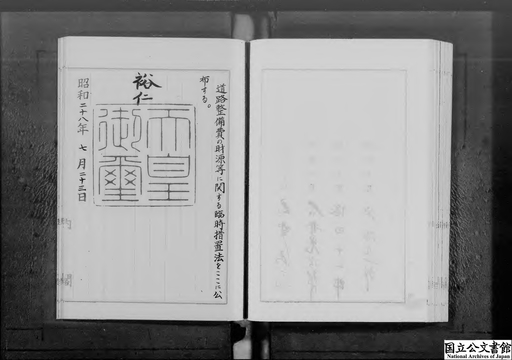 道路整備費の財源等に関する臨時措置法をここに公
布する。
裕仁
天皇
御璽
昭和二十八年 七月二十三日
国立公文書館
National Archives of Japan